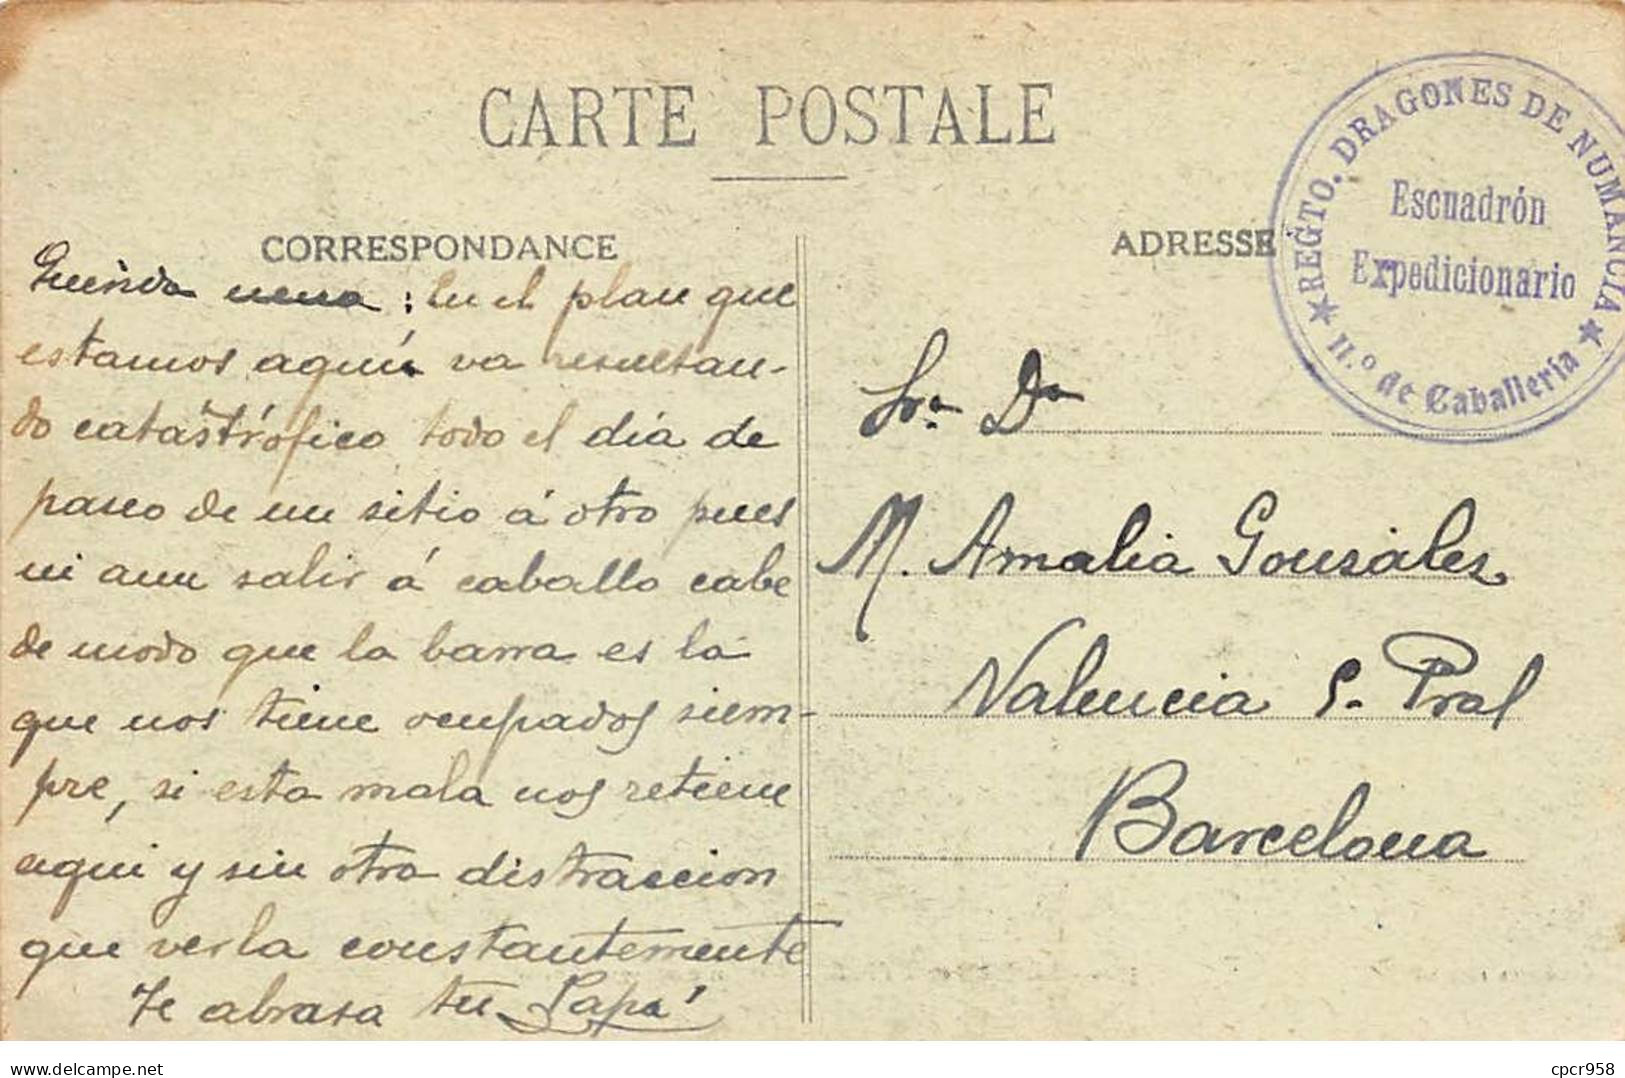 CARTE POSTALE
CORRESPONDANCE
Querida nena: En el plan que
estamos aquí va resultan-
do catastrófico todo el día de
paseo de un sitio á otro pues
ni aun salir á caballo cabe
de modo que la barra es la
que nos tiene ocupados siem-
pre, si esta mala nos retiene
aqui y sin otra distraccion
que verla constantemente
Te abrasa tu Papá
ADRESSE
REGTO. DRAGONES DE NUMANCIA
Escuadrón
Expedicionario
★ 11.º de Caballería ★
Sra. Da
M. Amalia Gonsáles
Valencia 5. Pral
Barcelona
Delcampe.net
cpcr958